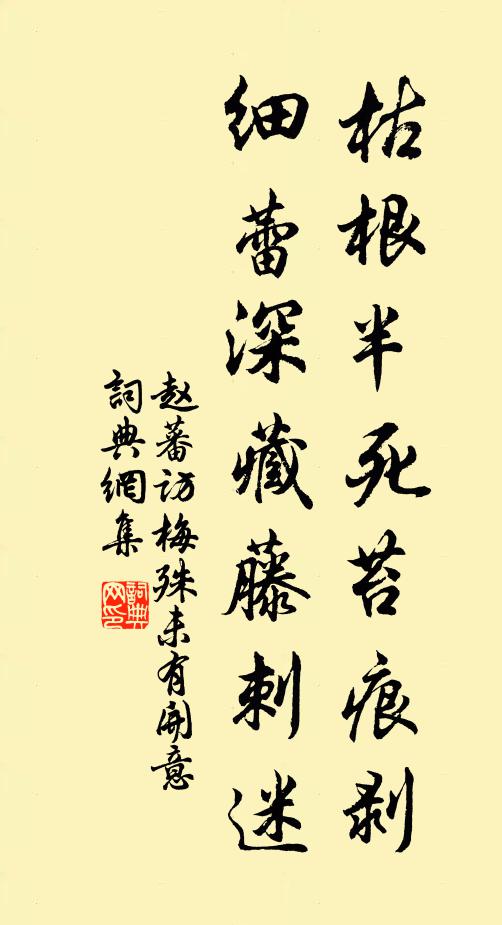 枯根半死苔痕剥
细蕾深藏藤刺迷
赵蕃访梅殊未有開意
詞典網集
詞典
网印